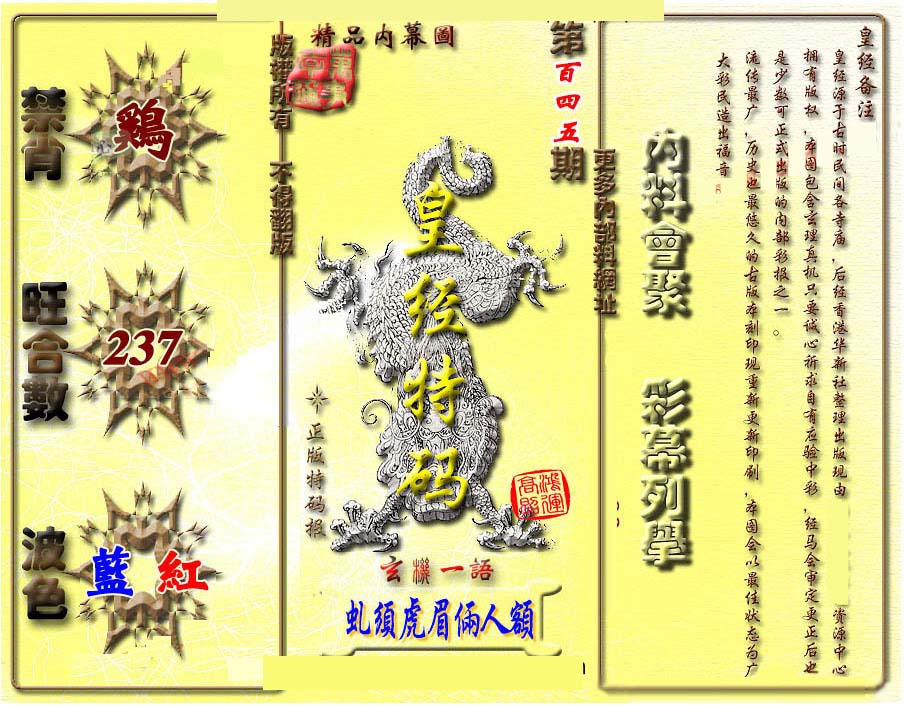 禁肖
鷄
旺合數
237
波色
藍 紅
版權所有 不得翻版
精品内幕圖
皇经特码
正版特码报
鴻運高照
玄機一語
虬須虎眉倆人額
第百四五期
更多内部料網址
内料會聚 彩幕列舉
皇经备注
皇经源于古时民间各寺庙，后经香港华新社整理出版现由 资源中心
拥有版权，本图包含玄理真机只要诚心祈求自有应验中彩，经马会审定更正后也
是少数可正式出版的内部彩报之一。
流传最广，历史也最悠久的古版本刻印现重新更新印刷，本图会以最佳状态为广
大彩民造出福音